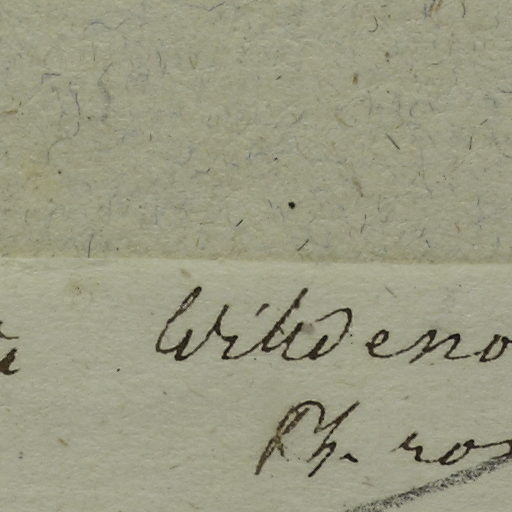 Willdeno
Ph. ros